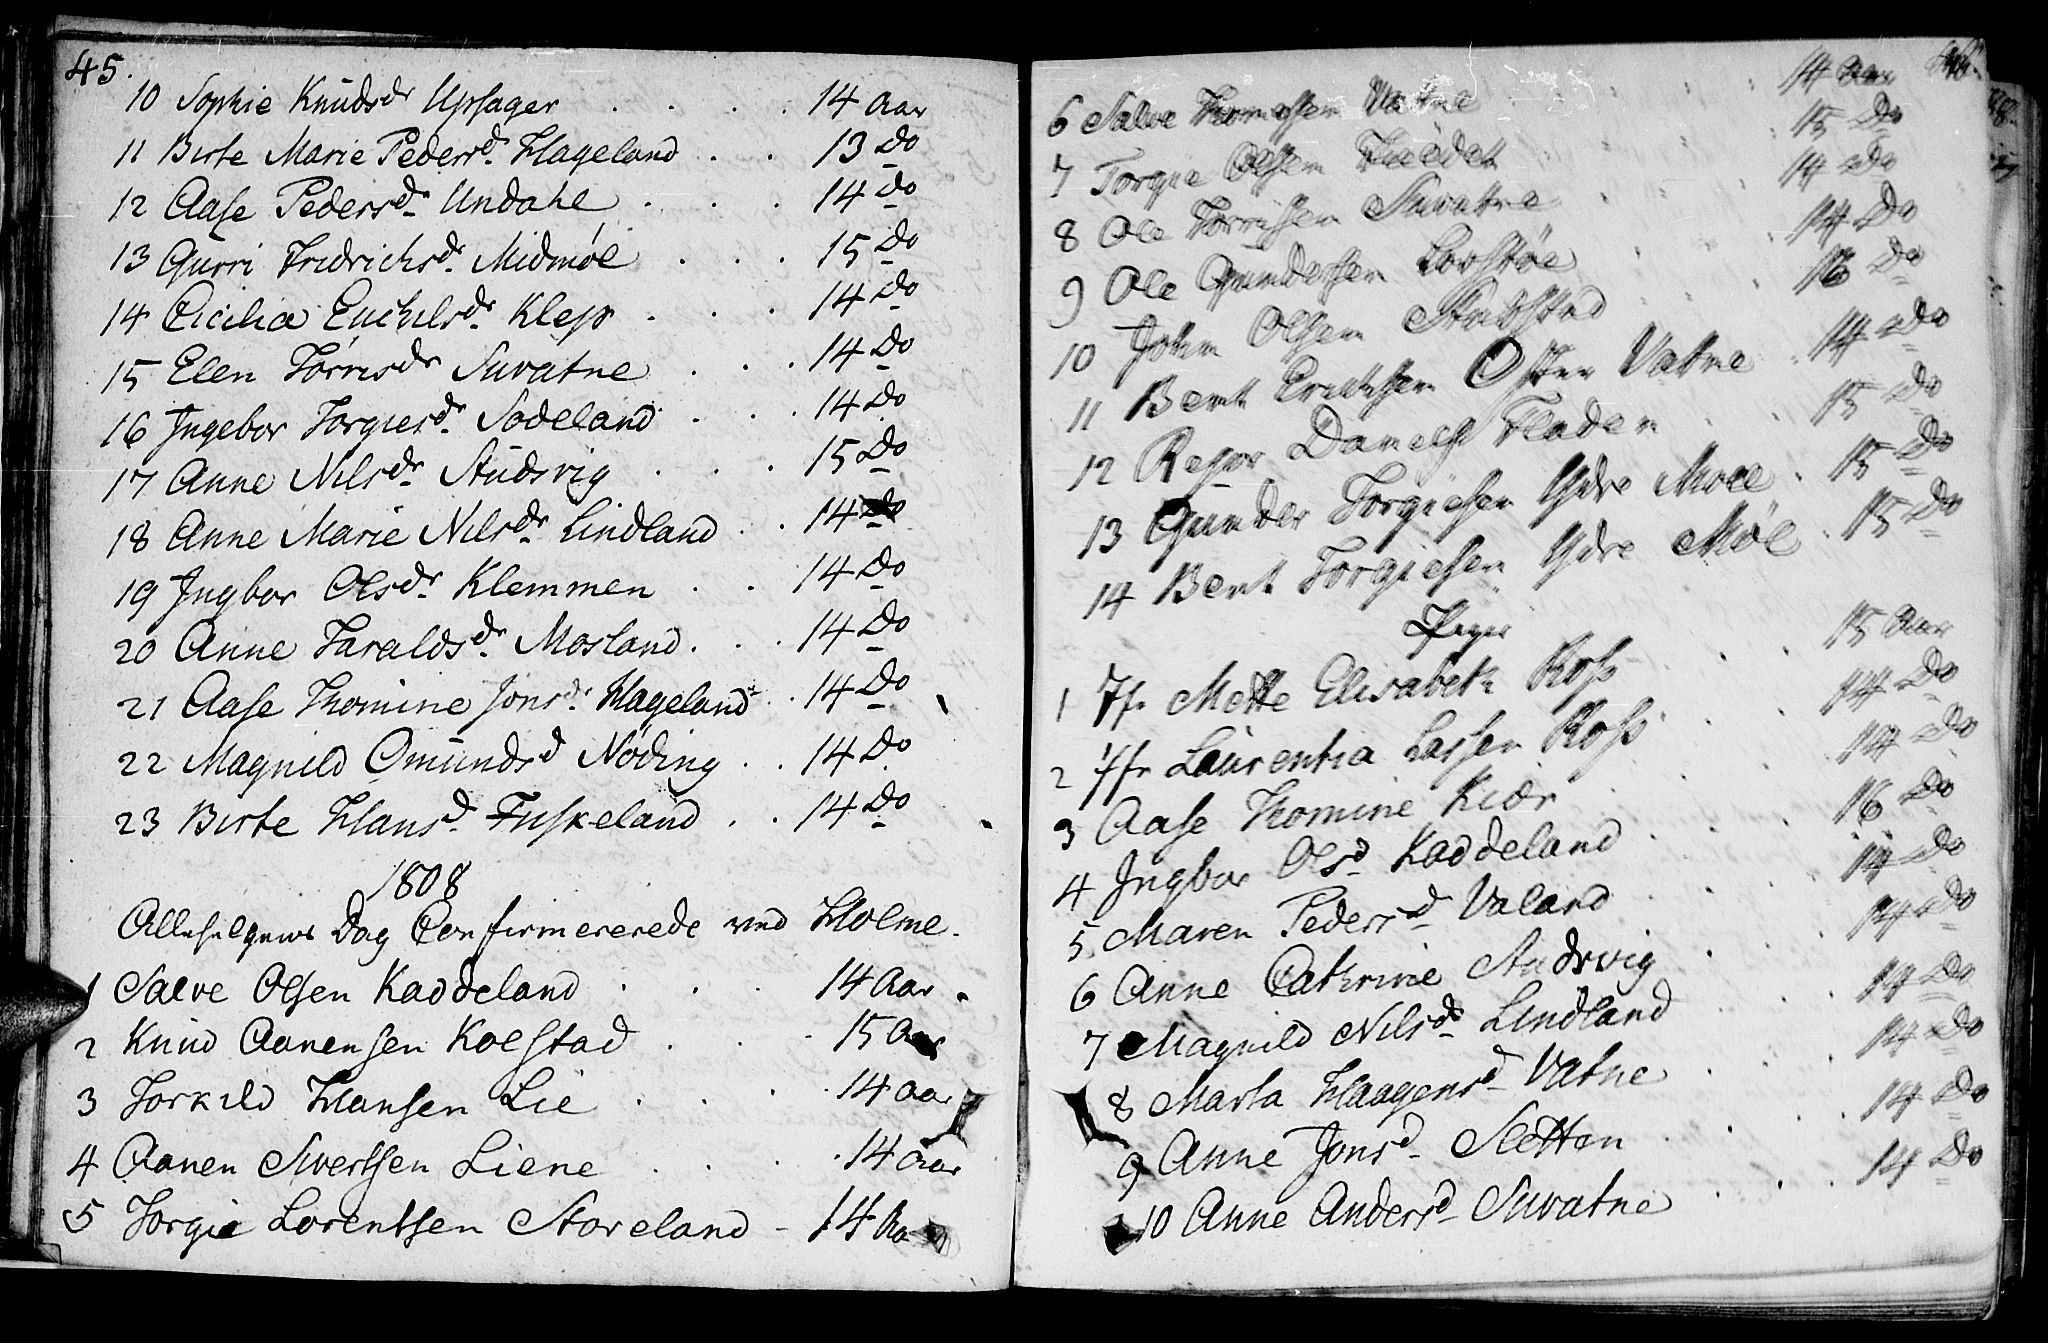 45.
10 Sophie Knudsdr Upsager . . . . 14 Aar
11 Birte Marie Pedersd. Hageland . . 13 Do
12 Aase Pedersd. Undahl . . . 14 Do
13 Gurri Fridrichsd. Midmøl . . . 15 Do
14 Cicilia Enchelsd. Klep . . . 14 Do
15 Elen Tørrisdr Suvatne . . . 14 Do
16 Ingebor Torgiesd. Sodeland . . . 14 Do
17 Anne Nilsdr. Studsvig . . . 15 Do
18 Anne Marie Nilsdr. Lindland . . 14 Do
19 Ingbor Olsdr. Klemmen . . 14 Do
20 Anne Taraldsdr. Mosland . . . 14 Do
21 Aase Thomine Jonsdr. Hageland . . 14 Do
22 Magnild Omundsd Nøding . . 14 Do
23 Birte Hansd. Fuskeland . . 14 Do
1808
Allehelgens Dag Confirmererede ved Holme.
1 Salve Olsen Kaddeland . . . 14 Aar
2 Knud Aanensen Kolstad . . . 15 Aar
3 Torkild Hansen Lie . . . 14 Aar
4 Aanen Sivertsen Liene . . . 14 Aar
5 Torgie Lorentsen Storeland - 14 Aa
6 Salve Thomesen Vatne . . . 14 Aar
7 Torgie Olsen . . . 15 Do
8 Ole Tørrisen Suvatne . . . 14 Do
9 Ole Gundersen . . . 14 Do
10 John Olsen Stubstad . . . 16 Do
11 Bent Erichsen Osten Vatne . 14 Do
12 Reyer Daniels Fladen . . 15 Do
13 Gunder Torgiesen Ydre Moel . 15 Do
14 Bent Torgiesen Ydre Møl . 15 Do
Piger
1 Jfr Mette Elisabeth Ross . . . 15 Aar
2 Jfr Laurentia Lassen Ross . . . 14 Do
3 Aase Thomine Kiær . . . 14 Do
4 Ingbor Olsd. Kaddeland . . . 16 Do
5 Maren Pedersd. Valand . . . 14 Do
6 Anne Cathrine Studsvig . . . 14 Do
7 Magnild Nilsdr. Lindland . . . 14 Do
8 Marta Haagensd. Vatne . . . 14 Do
9 Anne Jonsd. Sletten . . . 14 Do
10 Anne Andersd. Suvatne . . . 14 Do